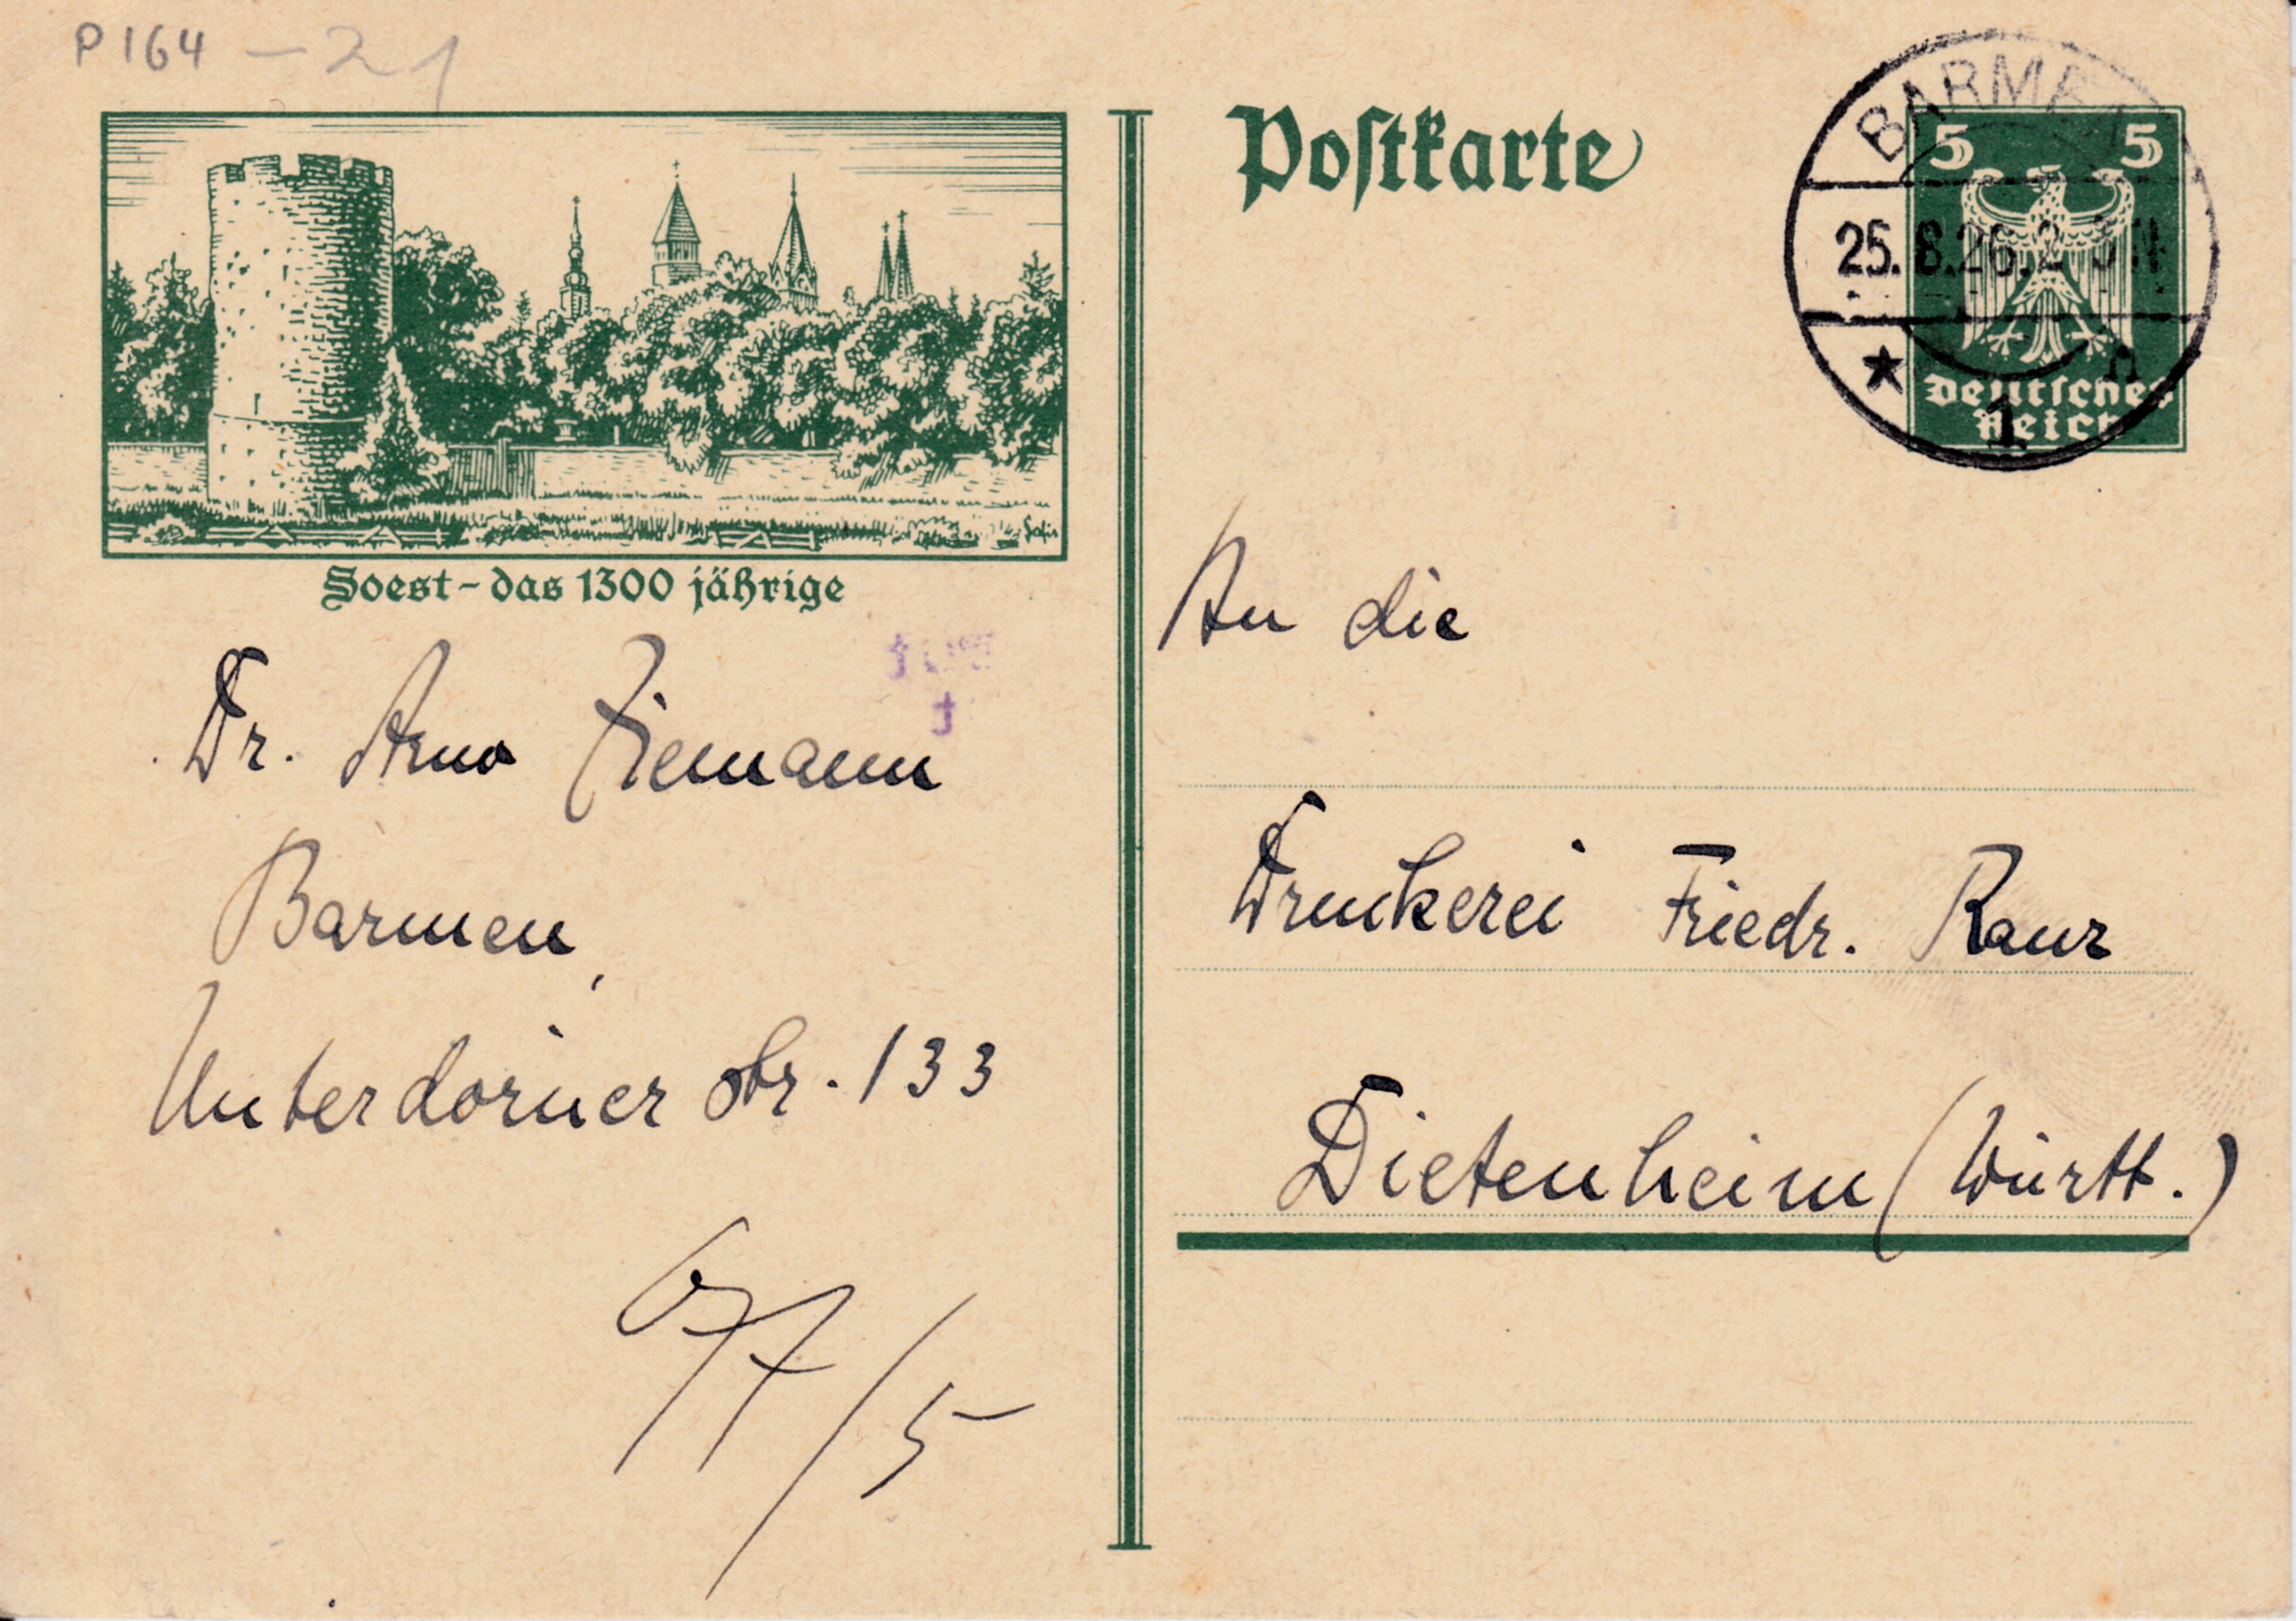 P 164 - 21
Postkarte
BARMEN
5 5
25.8.26.2
* 1 n
Deutsches
Reich
Soest - das 1300 jährige
Dr. Arno Ziemann
Barmen,
Unterdörner Str. 133
An die
Druckerei Friedr. Ranz
Dietenheim (Württ.)